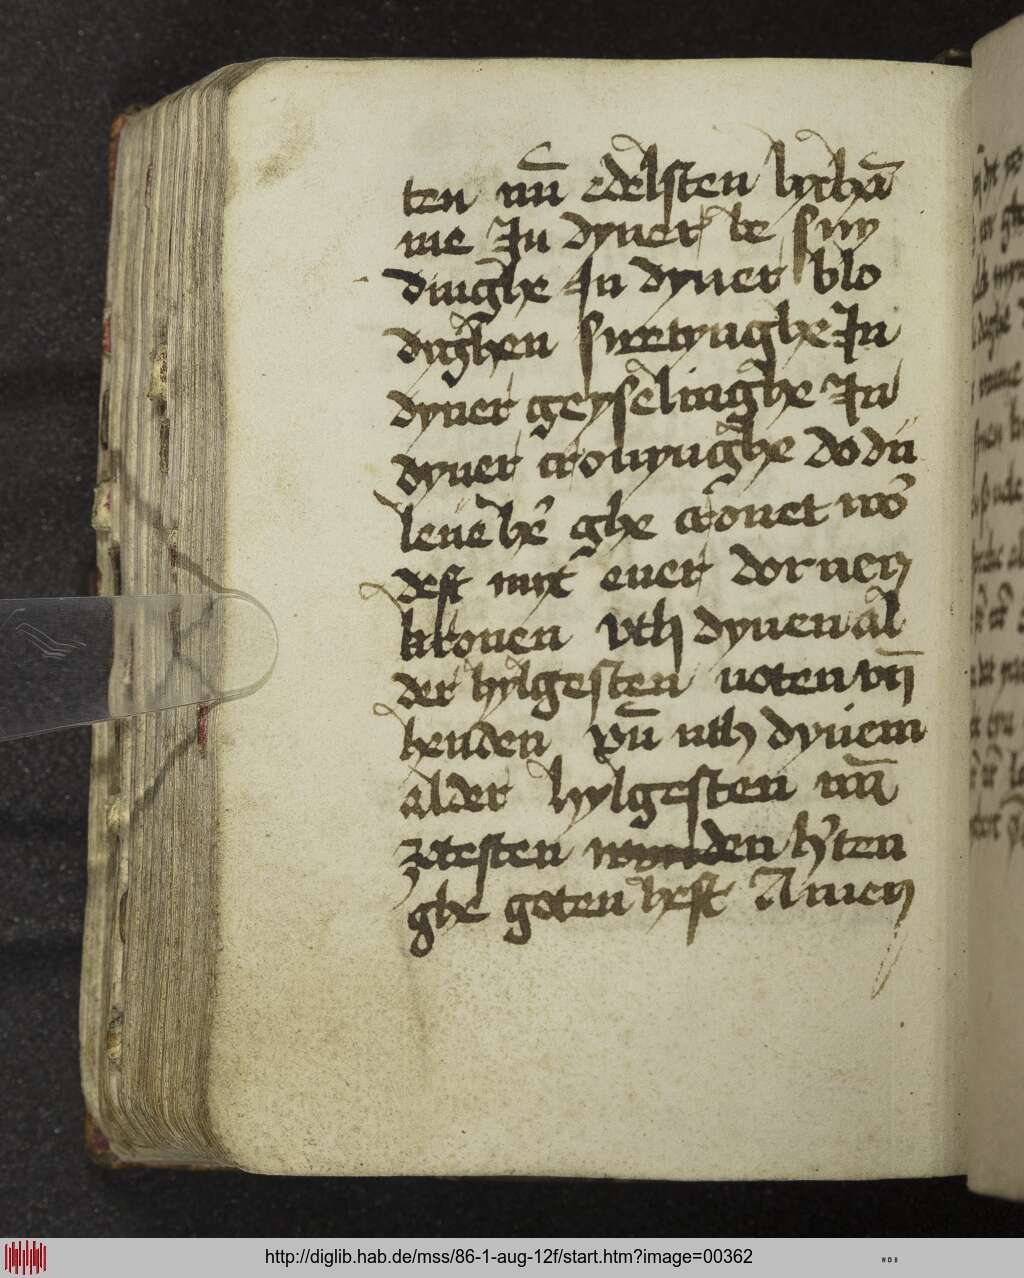 ten vnͫ edelsten lychā
me In dyner be sny
dinghe In dyner blo
dyghen swetynghe In
dyner geyselinghe In
dyner cronynghe do du
leue he͛ ghe cronet wo͛
dest myt ener dornen
kronen vth dynen al
der hylgesten voten vn̄
henden vn̄ vth dynem
alder hylgesten vn̄
zotesten wunden h͛ten
ghe goten hest Amen
http://diglib.hab.de/mss/86-1-aug-12f/start.htm?image=00362